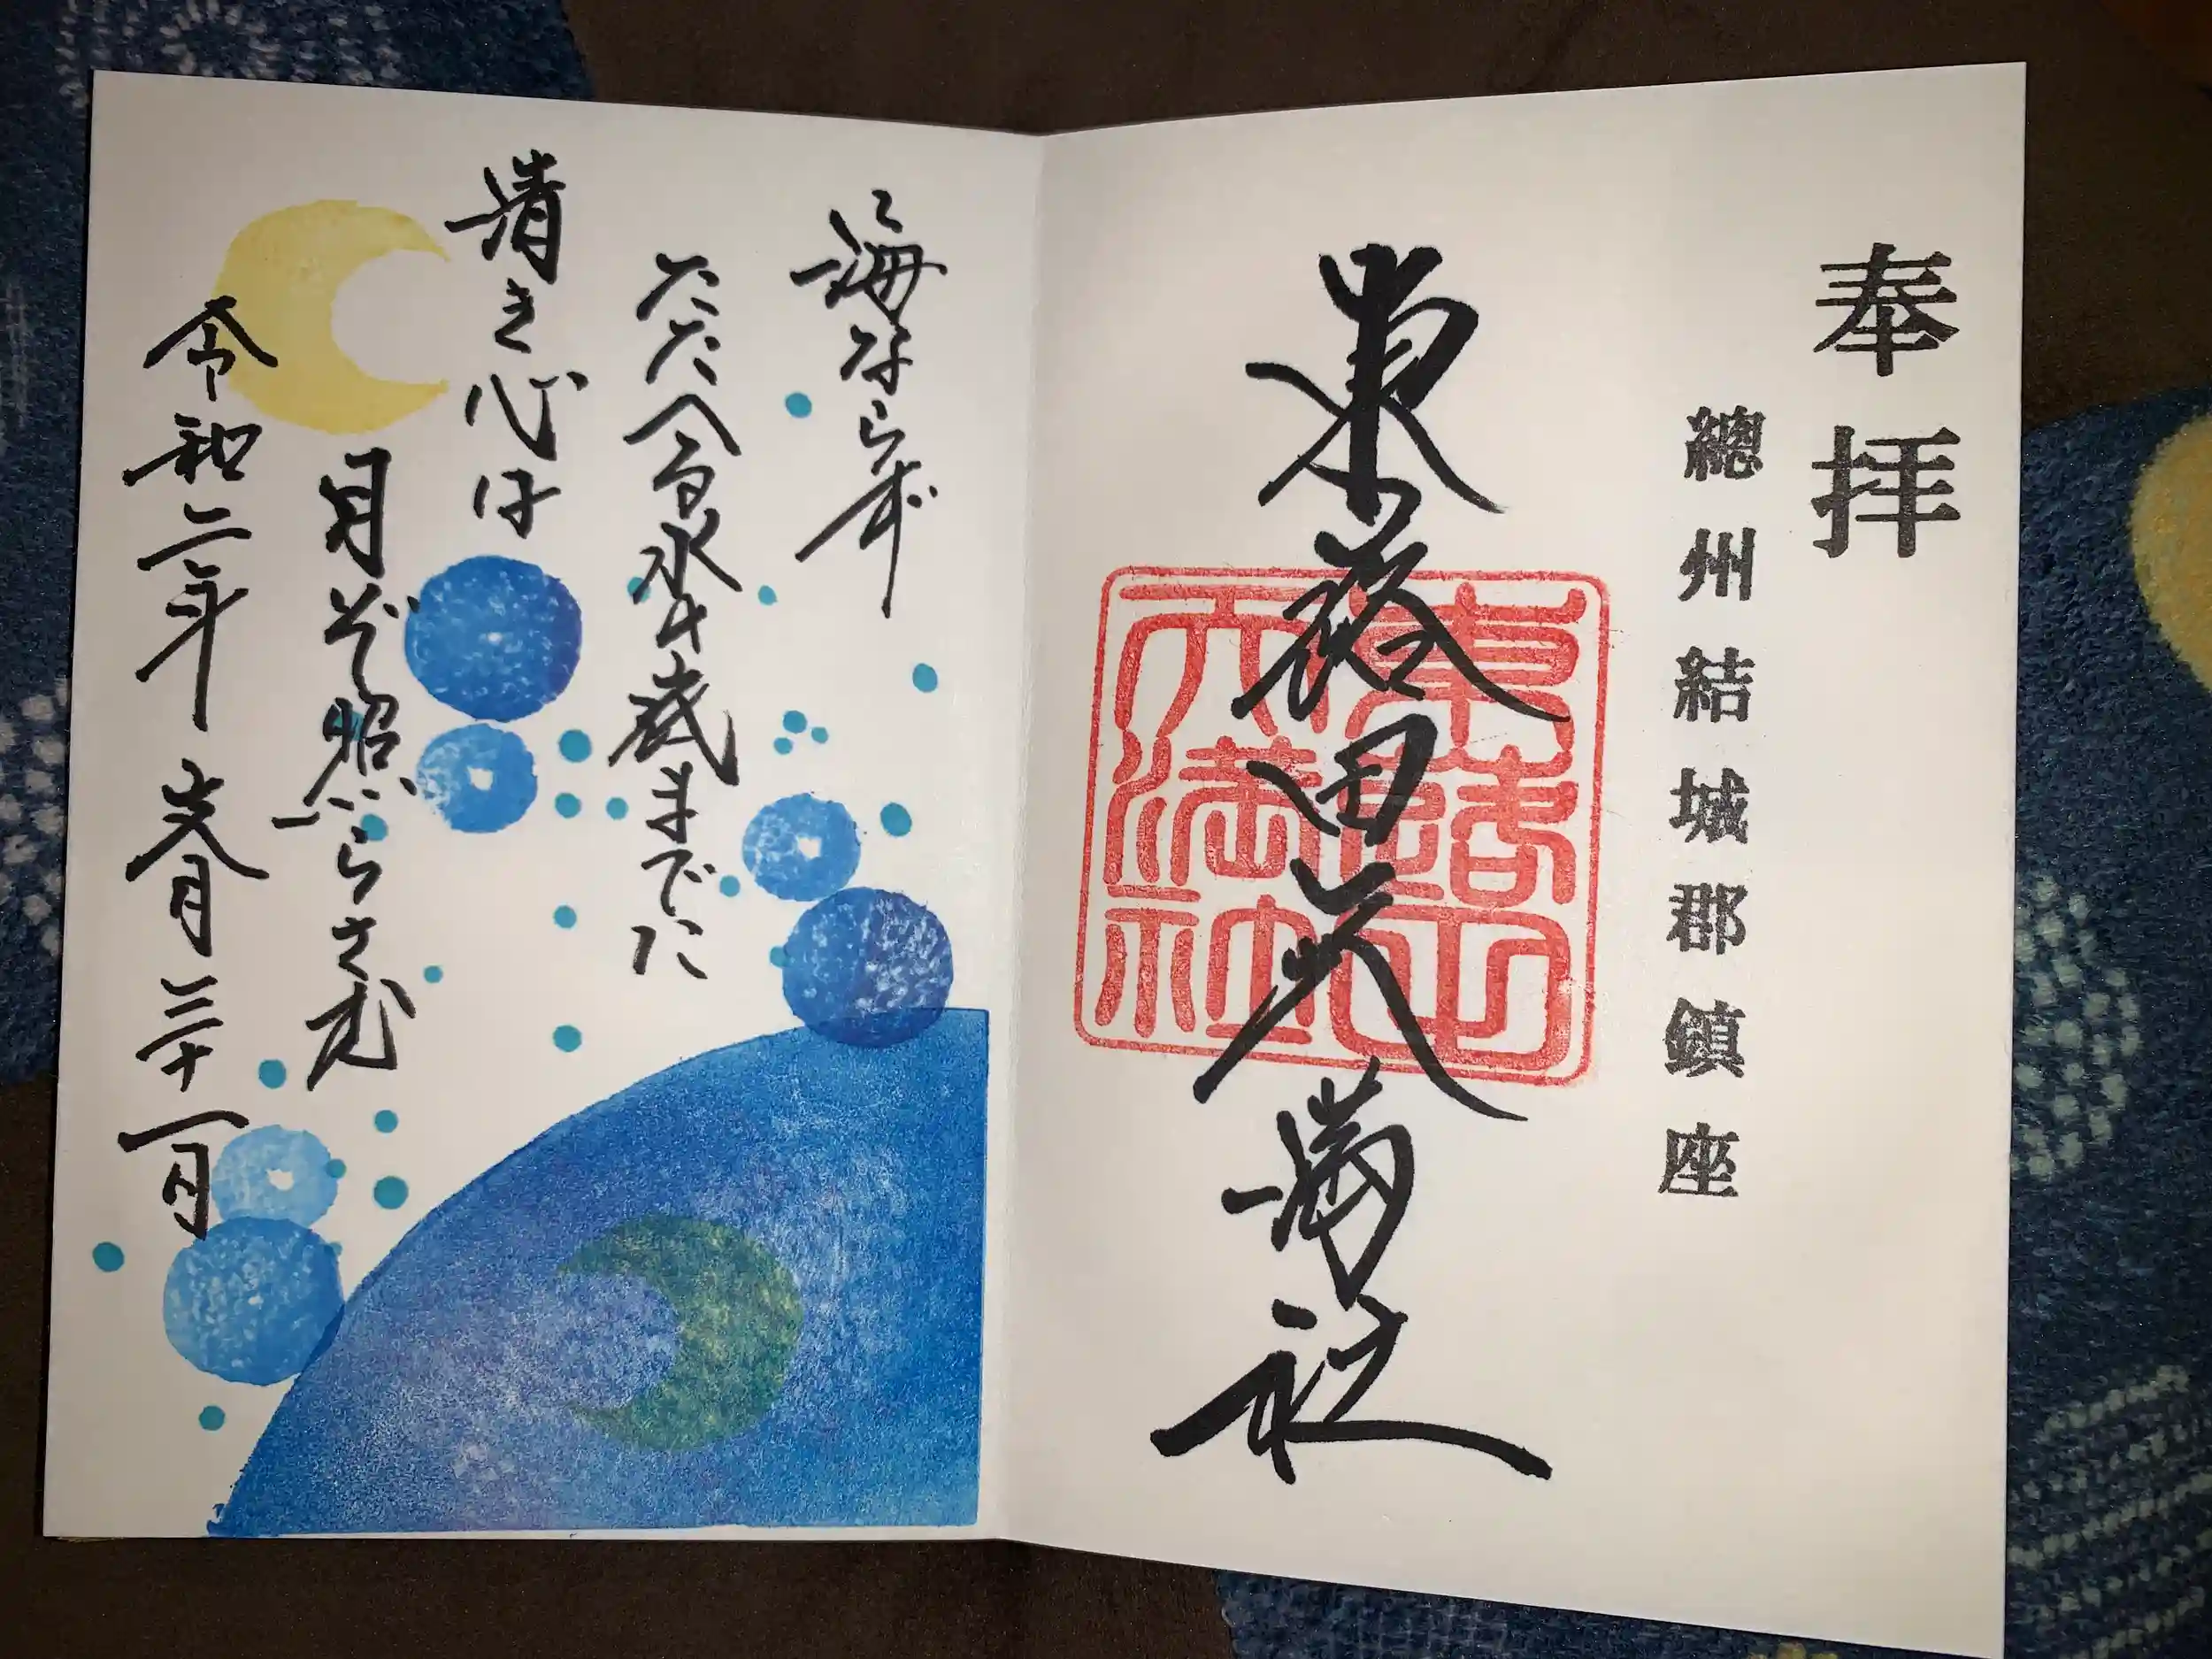 奉拝
總州結城郡鎮座
東蕗田天満社
海ならず
たたへる水の底までに
清き心は
月ぞ照らさむ
令和二年文月三十一日